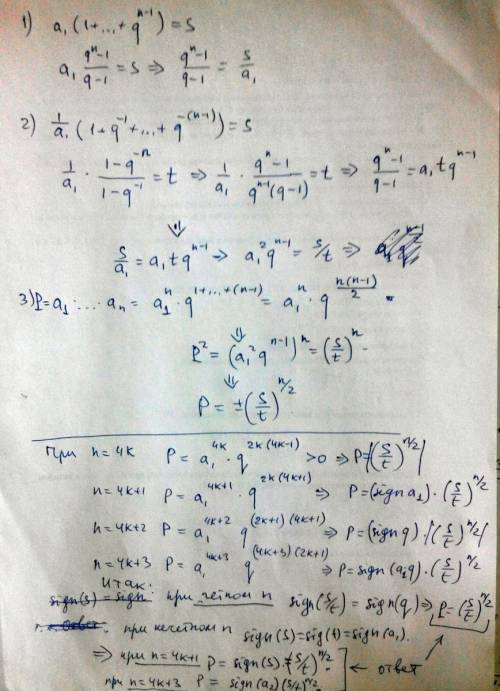 1) a₁(1+...+qⁿ⁻¹)=S
a₁ (qⁿ-1)/(q-1) = S ⇒ (qⁿ-1)/(q-1) = S/a₁
2) 1/a₁ (1+q⁻¹+...+q⁻⁽ⁿ⁻¹⁾)=S
1/a₁ · (1-q⁻ⁿ)/(1-q⁻¹) = t ⇒ 1/a₁ · (qⁿ-1)/(qⁿ⁻¹(q-1)) = t ⇒ (qⁿ-1)/(q-1) = a₁tqⁿ⁻¹
⇓
S/a₁ = a₁tqⁿ⁻¹ ⇒ a₁²qⁿ⁻¹ = S/t ⇒
3) P=a₁·...·aₙ = a₁ⁿ·q^(1+...+(n-1)) = a₁ⁿ·q^(n(n-1)/2)
⇓
P² = (a₁²qⁿ⁻¹)ⁿ = (S/t)ⁿ
⇓
P = ±(S/t)^(n/2)
При n=4k P = a₁^(4k)·q^(2k(4k-1)) >0 ⇒ P=|(S/t)^(n/2)|
n=4k+1 P = a₁^(4k+1)·q^(2k(4k+1)) ⇒ P=(sign a₁)·(S/t)^(n/2)
n=4k+2 P = a₁^(4k+2) q^((2k+1)(4k+1)) ⇒ P=(sign q)·|(S/t)^(n/2)|
n=4k+3 P = a₁^(4k+3) q^((4k+3)(2k+1)) ⇒ P=sign(a₁q)·(S/t)^(n/2)
Итак:
при чётном n sign(S/t) = sign(q) ⇒ P=(S/t)^(n/2)
при нечётном n sign(S)=sig(t)=sign(a₁).
⇒ при n=4k+1 P=sign(S)·(S/t)^(n/2) ← ответ
при n=4k+3 P = sign(a₂)(S/t)^(n/2)